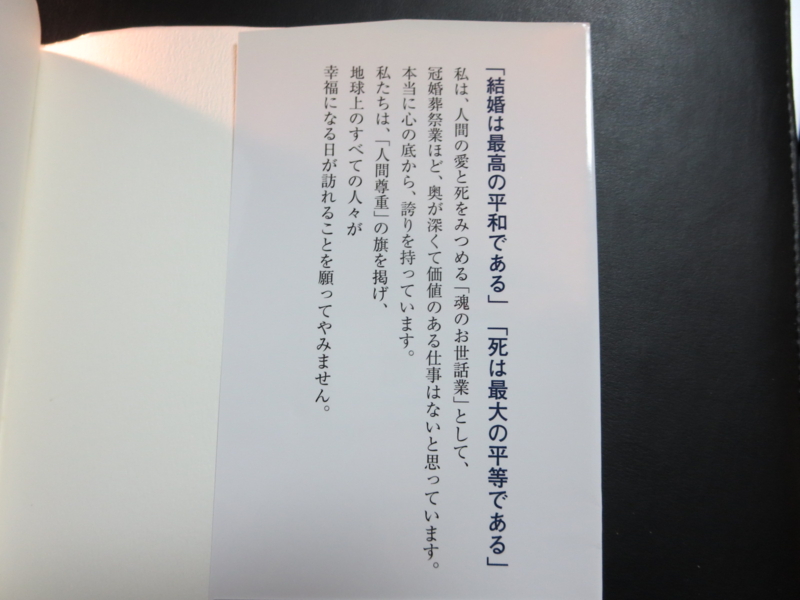 「結婚は最高の平和である」「死は最大の平等である」
私は、人間の愛と死をみつめる「魂のお世話業」として、
冠婚葬祭業ほど、奥が深くて価値のある仕事はないと思っています。
本当に心の底から、誇りを持っています。
私たちは、「人間尊重」の旗を掲げ、
地球上のすべての人々が
幸福になる日が訪れることを願ってやみません。